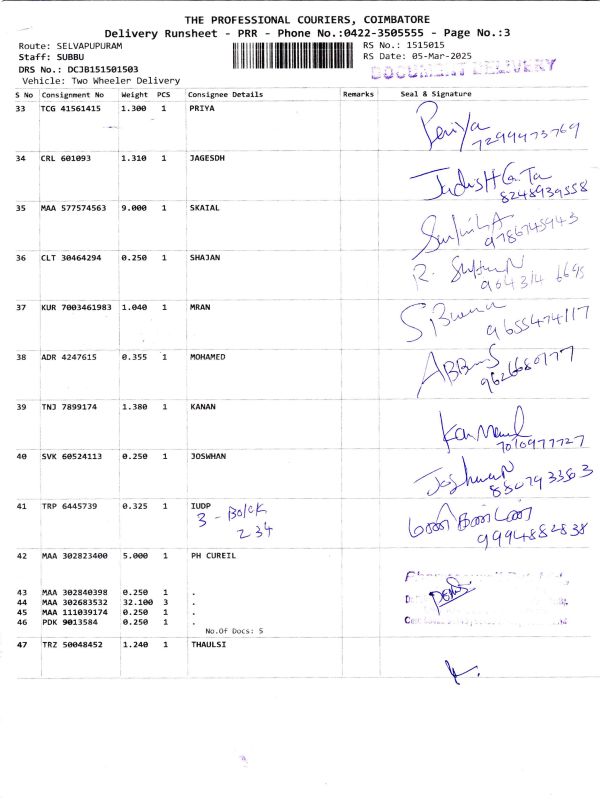 THE PROFESSIONAL COURIERS, COIMBATORE
Delivery Runsheet - PRR - Phone No.:0422-3505555 - Page No.:3
Route: SELVAPUPURAM RS No.: 1515015
Staff: SUBBU RS Date: 05-Mar-2025
DRS No.: DCJB151501503 DOCUMENT DELIVERY
Vehicle: Two Wheeler Delivery
S No Consignment No Weight PCS Consignee Details Remarks Seal & Signature
33 TCG 41561415 1.300 1 PRIYA Periya
7299973769
34 CRL 601093 1.310 1 JAGESDH
8248939558
35 MAA 577574563 9.000 1 SKAIAL
9786745943
36 CLT 30464294 0.250 1 SHAJAN R.
964314 6695
37 KUR 7003461983 1.040 1 MRAN
9655474117
38 ADR 4247615 0.355 1 MOHAMED
9626680777
39 TNJ 7899174 1.380 1 KANAN
7010977727
40 SVK 60524113 0.250 1 JOSWHAN JoshwaN
8807933 63
41 TRP 6445739 0.325 1 IUDP
3 - Bolck
234
9994882838
42 MAA 302823400 5.000 1 PH CUREIL
43 MAA 302840398 0.250 1 .
44 MAA 302683532 32.100 3 .
45 MAA 111039174 0.250 1 .
46 PDK 9013584 0.250 1 .
No.Of Docs: 5
47 TRZ 50048452 1.240 1 THAULSI